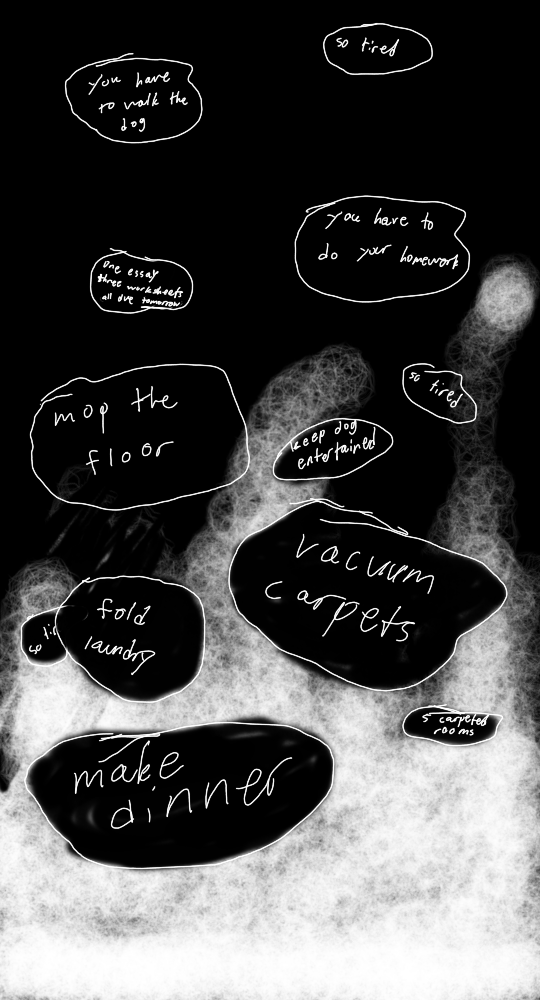 so tired
you have
to walk the
dog
you have to
do your homework
one essay
three worksheets
all due tomorrow
mop the
floor
so tired
keep dog
entertained
vacuum
carpets
fold
laundry
so
5 carpeted
rooms
make
dinner